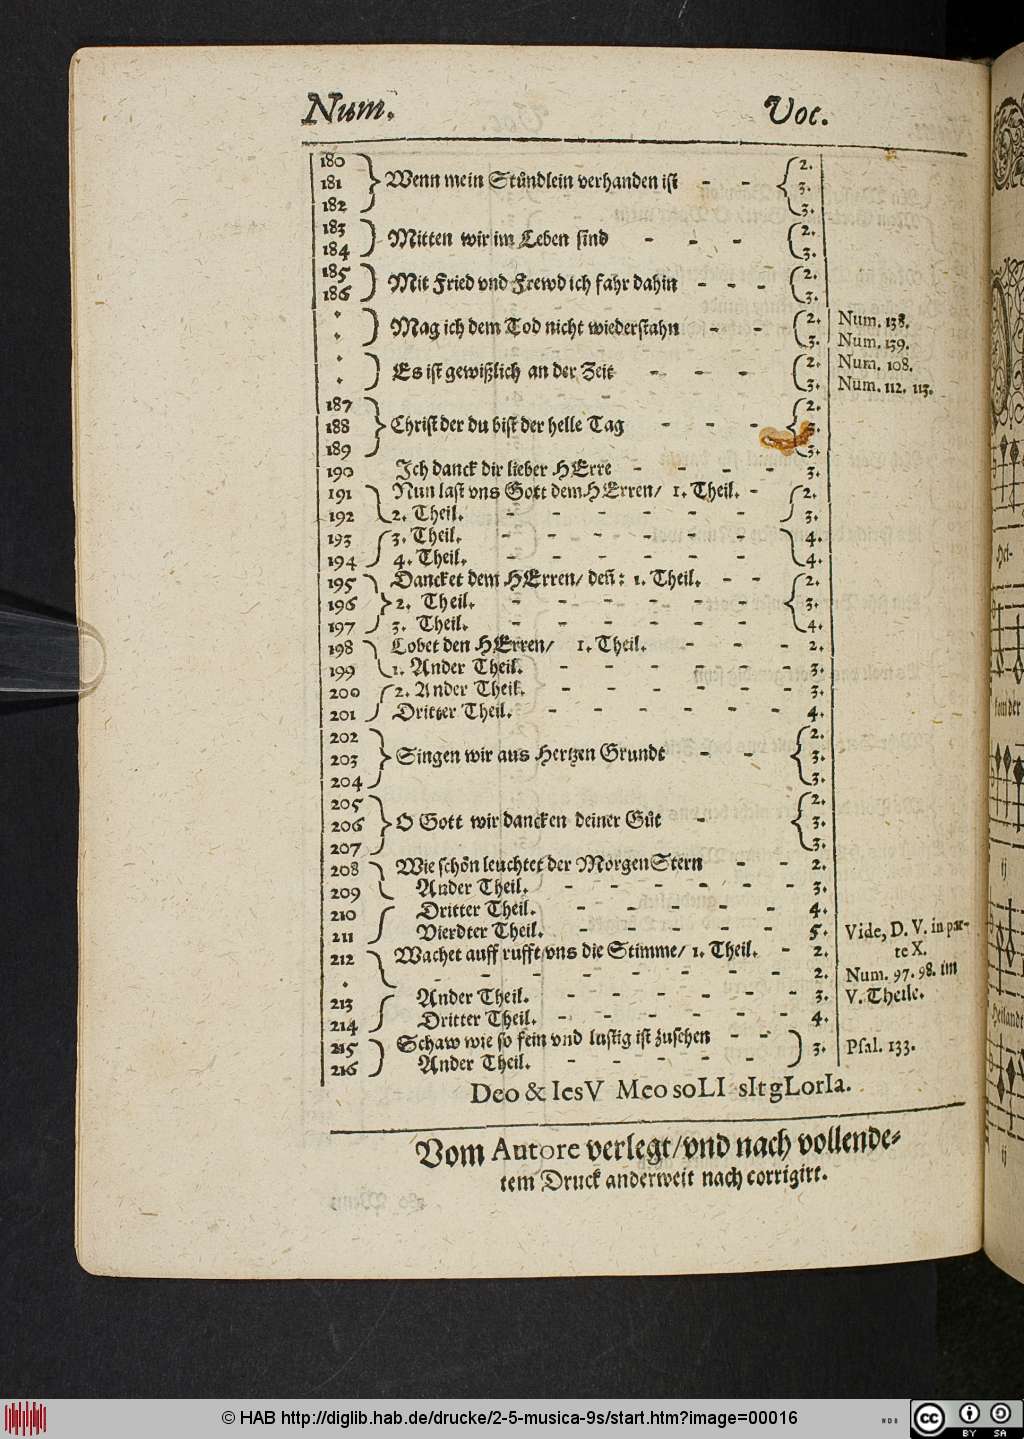 Num. Voc.
180 2.
181 Wenn mein Stůndlein verhanden ist - - 3.
182 3.
183 2.
Mitten wir im Leben sind - - -
184 3.
185 2.
Mit Fried vnd Frewd ich fahr dahin - - -
186 3.
. 2. Num. 138.
Mag ich dem Tod nicht wiederstahn - -
. 3. Num. 139.
. 2. Num. 108.
Es ist gewißlich an der Zeit - - -
. 3. Num. 112. 113.
187 2.
188 Christ der du bist der helle Tag - - - 3.
189 3.
190 Ich danck dir lieber HErre - - - - 3.
191 Nun last vns Gott dem HErren/ 1. Theil. - 2.
192 2. Theil. - - - - - - 3.
193 3. Theil. - - - - - - 4.
194 4. Theil. - - - - - - 4.
195 Dancket dem HErren/ deñ: 1. Theil. - - 2.
196 2. Theil. - - - - - - 3.
197 3. Theil. - - - - - - 4.
198 Lobet den HErren/ 1. Theil. - - - 2.
199 1. Ander Theil. - - - - - - 3.
200 2. Ander Theil. - - - - - - 3.
201 Dritter Theil. - - - - - - 4.
202 2.
203 Singen wir aus Hertzen Grundt - - 3.
204 3.
205 2.
206 O Gott wir dancken deiner Gůt - 3.
207 3.
208 Wie schön leuchtet der MorgenStern - - 2.
209 Ander Theil. - - - - - - 3.
210 Dritter Theil. - - - - - 4.
211 Vierdter Theil. - - - - - 5. Vide, D. V. in par-
te X.
212 Wachet auff rufft vns die Stimme/ 1. Theil. - 2.
. - - - - - - - 2. Num. 97. 98. im
213 Ander Theil. - - - - - - 3. V. Theile.
214 Dritter Theil. - - - - - - 4.
215 Schaw wie so fein vnd lustig ist zusehen - -
3. Psal. 133.
216 Ander Theil. - - - - -
Deo & IesV Meo soLI sIt gLorIa.
Vom Autore verlegt/vnd nach vollende-
tem Druck anderweit nach corrigirt.
Hei-
kom der
ij
Heilandt
ij
© HAB http://diglib.hab.de/drucke/2-5-musica-9s/start.htm?image=00016
cc BY SA